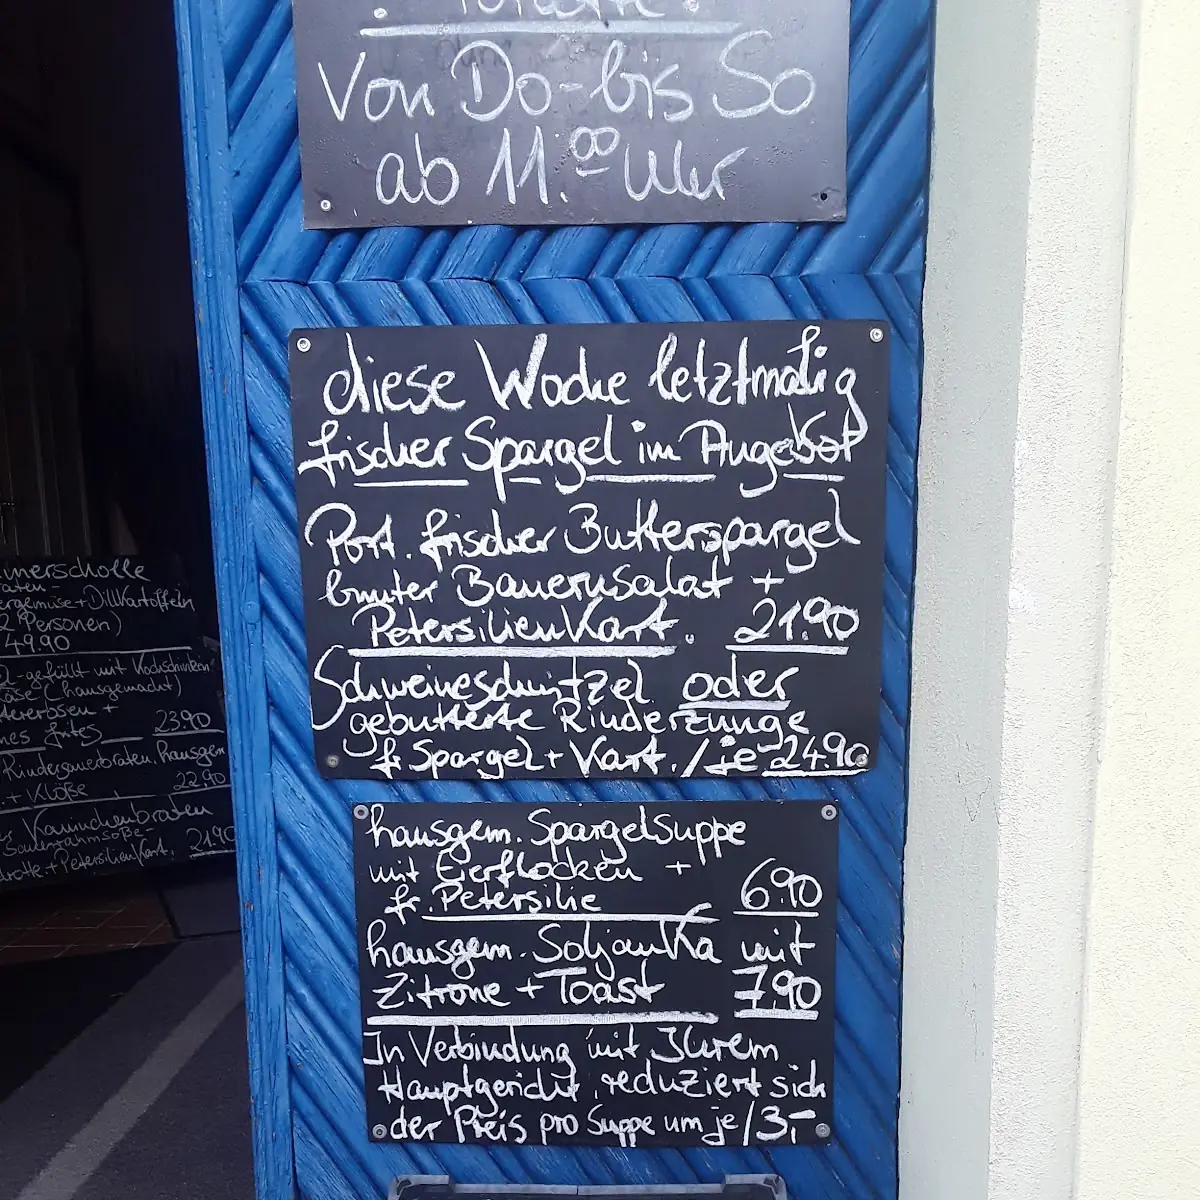 Von Do-bis So
ab 11.00 Uhr
diese Woche letztmalig
frischer Spargel im Angebot
Port. frischer Butterspargel
bunter Bauernsalat +
Petersilienkart. 21.90
Schweineschnitzel oder
gebutterte Rinderzunge
fr. Spargel + Kart. / je 24.90
hausgem. Spargelsuppe
mit Eierflocken +
fr. Petersilie 6.90
hausgem. Soljanka mit
Zitrone + Toast 7.90
In Verbindung mit Ihrem
Hauptgericht, reduziert sich
der Preis pro Suppe um je / 3,-
+ Dillkartoffeln
2 Personen)
49.90
-gefüllt mit Kochschinken
(hausgemacht)
+ 23.90
Rindersauerbraten, hausgem
+ Klöße 22.90
Kaninchenbraten
+ Petersilienkart. 21.90